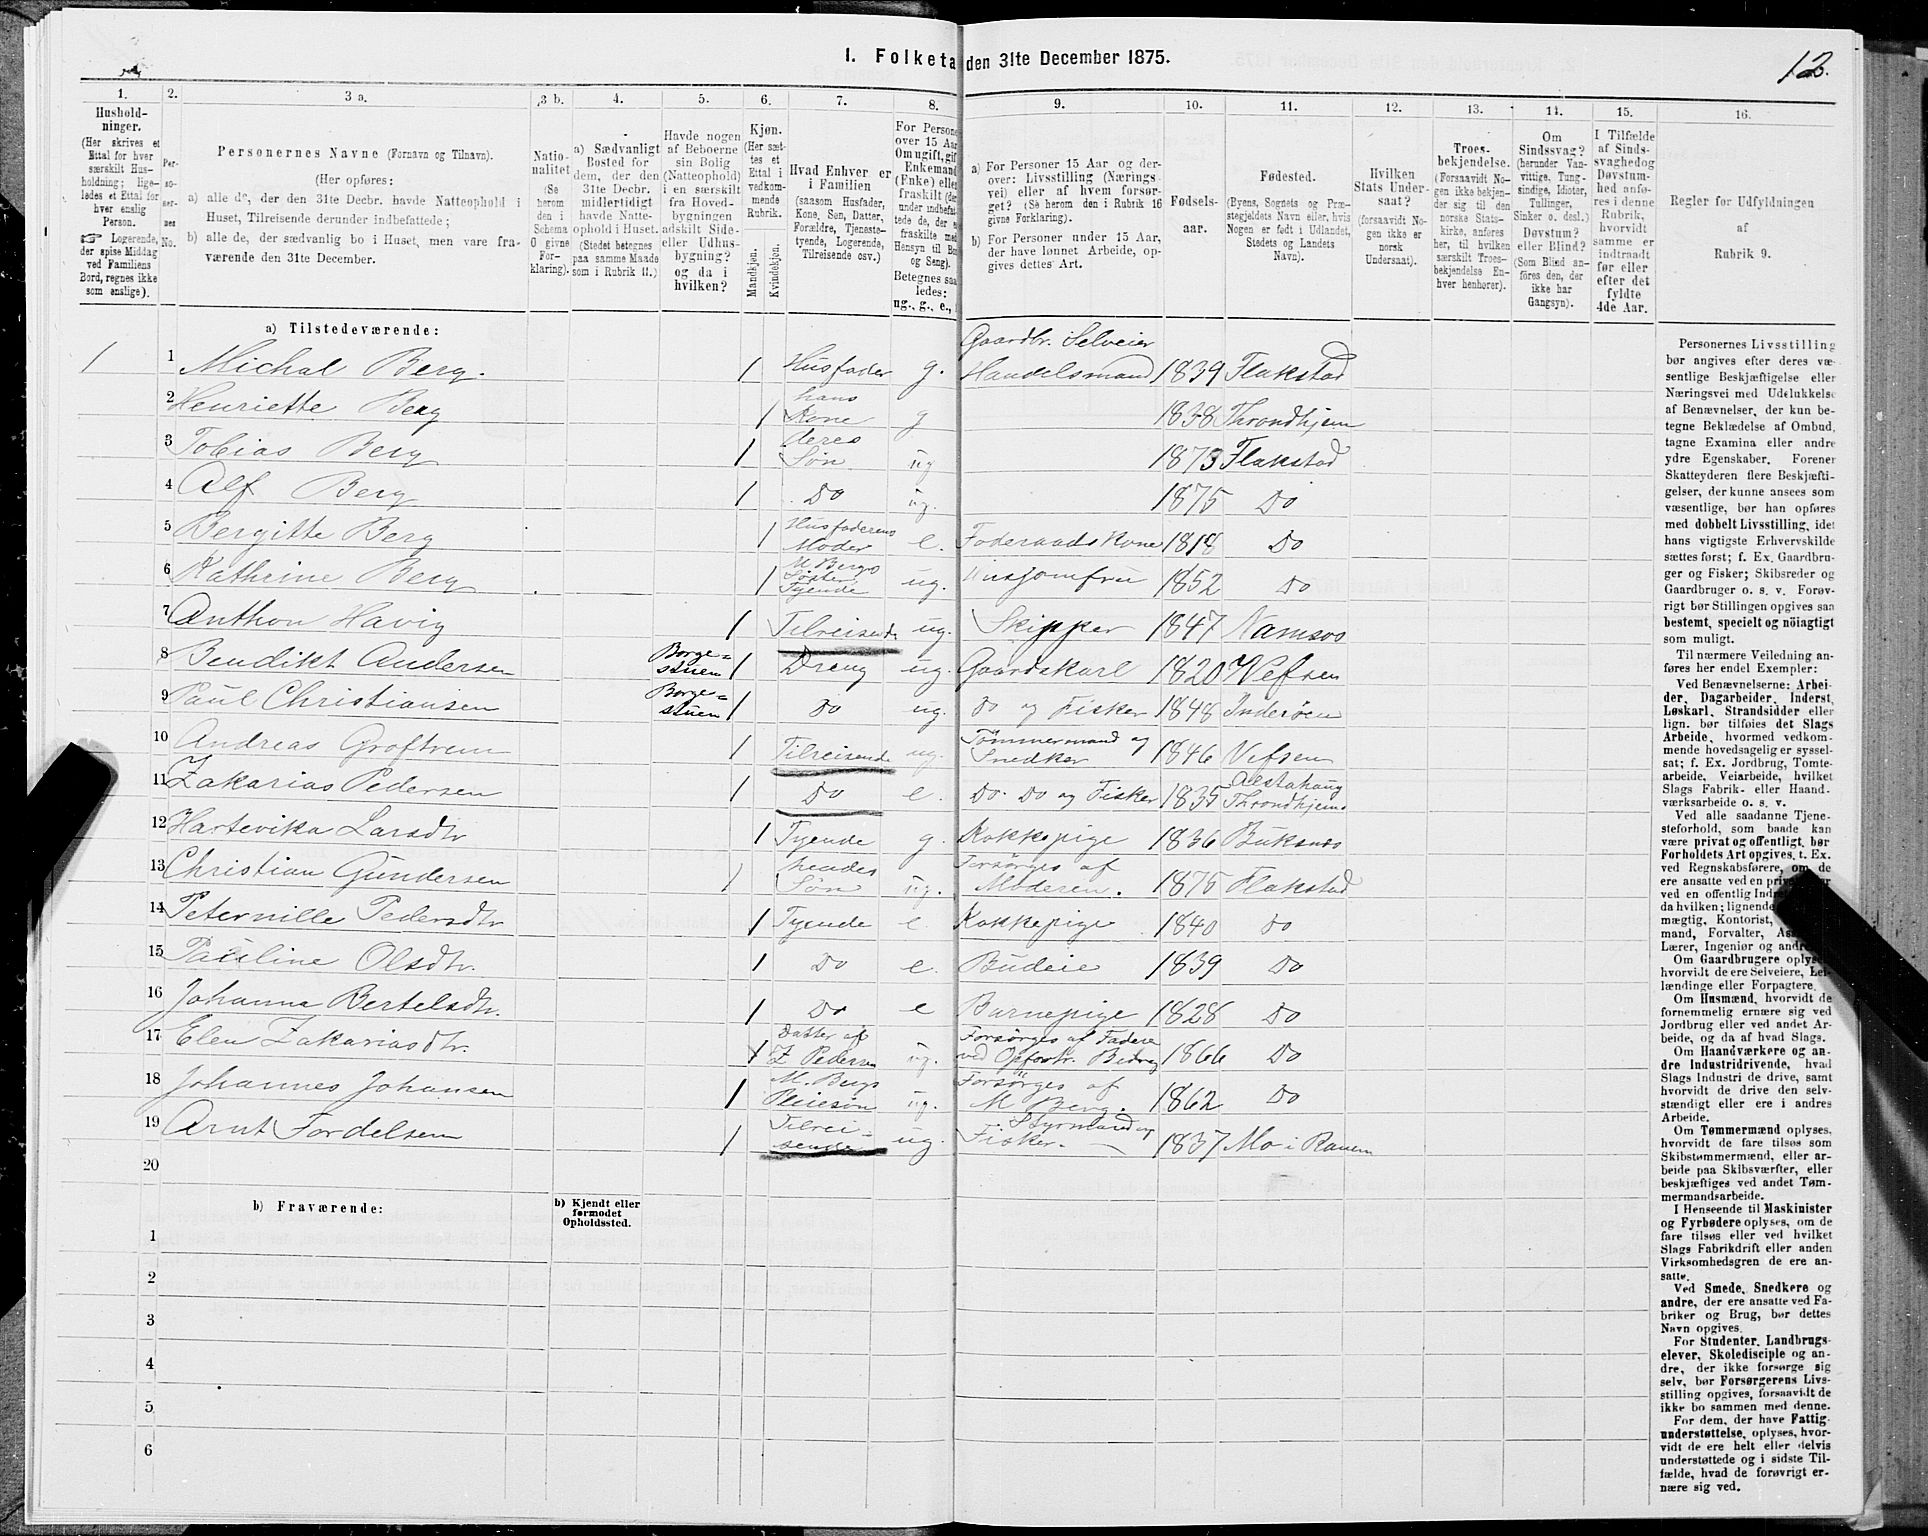 I. Folketa den 31te December 1875.
12.
1. 2. 3 a. 3 b. 4. 5. 6. 7. 8. 9. 10. 11. 12. 13. 14. 15. 16.
Hushold-
ninger.
(Her skrives et
Ettal for hver
særskilt Hus-
holdning; lige-
ledes et Ettal for
hver enslig
Person.
☞ Logerende,
der spise Middag
ved Familiens
Bord, regnes ikke
som enslige).
Per-
so-
ner-
nes
No.
Personernes Navne (Fornavn og Tilnavn).
(Her opføres:
a) alle de, der den 31te Decbr. havde Natteophold i
Huset, Tilreisende derunder indbefattede;
b) alle de, der sædvanlig bo i Huset, men vare fra-
værende den 31te December.
Natio-
nalitet
(Se
herom
den i
Schema
O givne
For-
klaring).
a) Sædvanligt
Bosted for
dem, der den
31te Decbr.
midlertidigt
havde Natte-
ophold i Huset.
(Stedet betegnes
paa samme Maade
som i Rubrik 11.)
Havde nogen
af Beboerne
sin Bolig
(Natteophold)
i en særskilt
fra Hoved-
bygningen
adskilt Side-
eller Udhus-
bygning?
og da i
hvilken?
Kjøn.
(Her sæt-
tes et
Ettal i
vedkom-
mende
Rubrik.
Mandkjøn.
Kvindekjøn.
Hvad Enhver er
i Familien
(saasom Husfader,
Kone, Søn, Datter,
Forældre, Tjeneste-
tyende, Logerende,
Tilreisende osv.)
For Persone
over 15 Aar
Om ugift, gif
Enkemand
(Enke) elle
fraskilt (der
under indbefat-
tede de, der e
fraskilte med
Hensyn til Bo
og Seng).
Betegnes saa
ledes:
ug., g., e.,
a) For Personer 15 Aar og der-
over: Livsstilling (Nærings-
vei) eller af hvem forsør-
get? (Se herom den i Rubrik 16
givne Forklaring).
b) For Personer under 15 Aar,
der have lønnet Arbeide, op-
gives dettes Art.
Fødsels-
aar.
Fødested.
(Byens, Sognets og Præ-
stegjeldets Navn eller, hvis
Nogen er født i Udlandet,
Stedets og Landets
Navn).
Hvilken
Stats Under-
saat?
(forsaavidt No-
gen ikke er
norsk
Undersaat).
Troes-
bekjendelse.
(Forsaavidt No-
gen ikke bekjen-
der sig til den
norske Stats-
kirke, anføres
her, til hvilken
særskilt Troes-
bekjendelse En-
hver henhører).
Om
Sindssvag?
(herunder Van-
vittige, Tung-
sindige, Idioter,
Tullinger,
Sinker o. desl.)
Døvstum?
eller Blind?
(Som Blind an-
føres den, der
ikke har
Gangsyn).
I Tilfælde
af Sinds-
svaghed og
Døvstum-
hed anfø-
res i denne
Rubrik,
hvorvidt
samme er
indtraadt
før eller
efter det
fyldte
4de Aar.
Regler for Udfyldningen
af
Rubrik 9.
a) Tilstedeværende:
1 1 Michal Berg. 1 Husfader g. Gaardbr. Selveier Handelsmand 1839 Flakstad
2 Henriette Berg 1 hans Kone g 1838 Throndhjem
3 Tobias Berg 1 deres Søn ug 1873 Flakstad
4 Alf Berg 1 Do ug. 1875 Do
5 Bergitte Berg 1 Husfaderens Moder e. Føderaadskone 1818 Do
6 Kathrine Berg 1 M Bergs Søster Tyende ug. Husjomfru 1852 Do
7 Anthon Havig 1 Tilreisende ug. Skipper 1847 Namsos
8 Bendikt Andersen Borge= stuen 1 Dreng ug. Gaardskarl 1820 Vefsen
9 Paul Christiansen Borge= stuen 1 Do ug. Do og Fisker 1848 Inderøen
10 Andreas Groftrem 1 Tilreisende ug. Tømmermand og Snedker 1846 Vefsen
11 Zakarias Pedersen 1 Do e Do. Do og Fisker 1835 Alstahaug Throndhjems
12 Hartevika Larsdtr 1 Tyende g. Kokkepige 1836 Buksnæs
13 Christian Gundersen 1 hendes Søn ug. Forsørges af Moderen. 1875 Flakstad
14 Peternille Pedersdtr 1 Tyende e. Kokkepige 1840 Do
15 Pauline Olsdtr. 1 Do e. Budeie 1839 Do
16 Johanna Bertelsdtr. 1 Do e Barnepige 1828 Do
17 Elen Zakariasdtr. 1 Datter af Z Pedersen ug. Forsørges af Fadere ved Opfostr. Bidrag 1866 Do
18 Johannes Johansen 1 M. Bergs Pleiesøn ug. Forsørges af M Berg. 1862 Do
19 Arnt Fordelsen 1 Tilrei- sende ug. Styrmand og Fisker. 1837 Mo i Ranen
20
b) Fraværende:
b) Kjendt eller
formodet
Opholdssted.
1
2
3
4
5
6
Personernes Livsstilling
bør angives efter deres væ-
sentlige Beskjæftigelse eller
Næringsvei med Udelukkelse
af Benævnelser, der kun be-
tegne Beklædelse af Ombud,
tagne Examina eller andre
ydre Egenskaber. Forener
Skatteyderen flere Beskjæfti-
gelser, der kunne ansees som
væsentlige, bør han opføres
med dobbelt Livsstilling, idet
hans vigtigste Erhvervskilde
sættes først; f. Ex. Gaardbru-
ger og Fisker; Skibsreder og
Gaardbruger o. s. v. Forøv-
rigt bør Stillingen opgives saa
bestemt, specielt og nöiagtigt
som muligt.
Til nærmere Veiledning an-
føres her endel Exempler:
Ved Benævnelserne: Arbei-
der, Dagarbeider, Inderst,
Løskarl, Strandsidder eller
lign. bør tilføies det Slags
Arbeide, hvormed vedkom-
mende hovedsagelig er syssel-
sat; f. Ex. Jordbrug, Tomte-
arbeide, Veiarbeide, hvilket
Slags Fabrik- eller Haand-
værksarbeide o. s. v.
Ved alle saadanne Tjene-
steforhold, som baade kan
være privat og offentligt, bør
Forholdets Art opgives, t. Ex.
ved Regnskabsførere, om de
ere ansatte ved en
ved en offentlig
da hvilken; lignende
mægtig, Kontorist,
mand, Forvalter,
Lærer, Ingeniør og
Om Gaardbrugere
hvorvidt de ere Selveiere, Lei-
lændinge eller Forpagtere.
Om Husmænd, hvorvidt de
fornemmelig ernære sig ved
Jordbrug eller ved andet Ar-
beide, og da af hvad Slags.
Om Haandværkere og an-
dre Industridrivende, hvad
Slags Industri de drive, samt
hvorvidt de drive den selv-
stændigt eller ere i andres
Arbeide.
Om Tømmermænd oplyses,
hvorvidt de fare tilsøs som
Skibstømmermænd, eller ar-
beide paa Skibsværfter, eller
beskjæftiges ved andet Tøm-
mermandsarbeide.
I Henseende til Maskinister
og Fyrbødere oplyses, om de
fare tilsøs eller ved hvilket
Slags Fabrikdrift eller anden
Virksomhedsgren de ere an-
satte.
Ved Smede, Snedkere og
andre, der ere ansatte ved Fa-
briker og Brug, bør dettes
Navn opgives.
For Studenter, Landbrugs-
elever, Skoledisciple og an-
dre, der ikke forsørge sig
selv, bør Forsørgerens Livs-
stilling opgives, forsaavidt de
ikke bo sammen med denne.
For dem, der have Fattig-
understøttelse, oplyses, hvor-
vidt de ere helt eller delvis
understøttede og i sidste Til-
fælde, hvad de forøvrigt er-
nære sig ved.